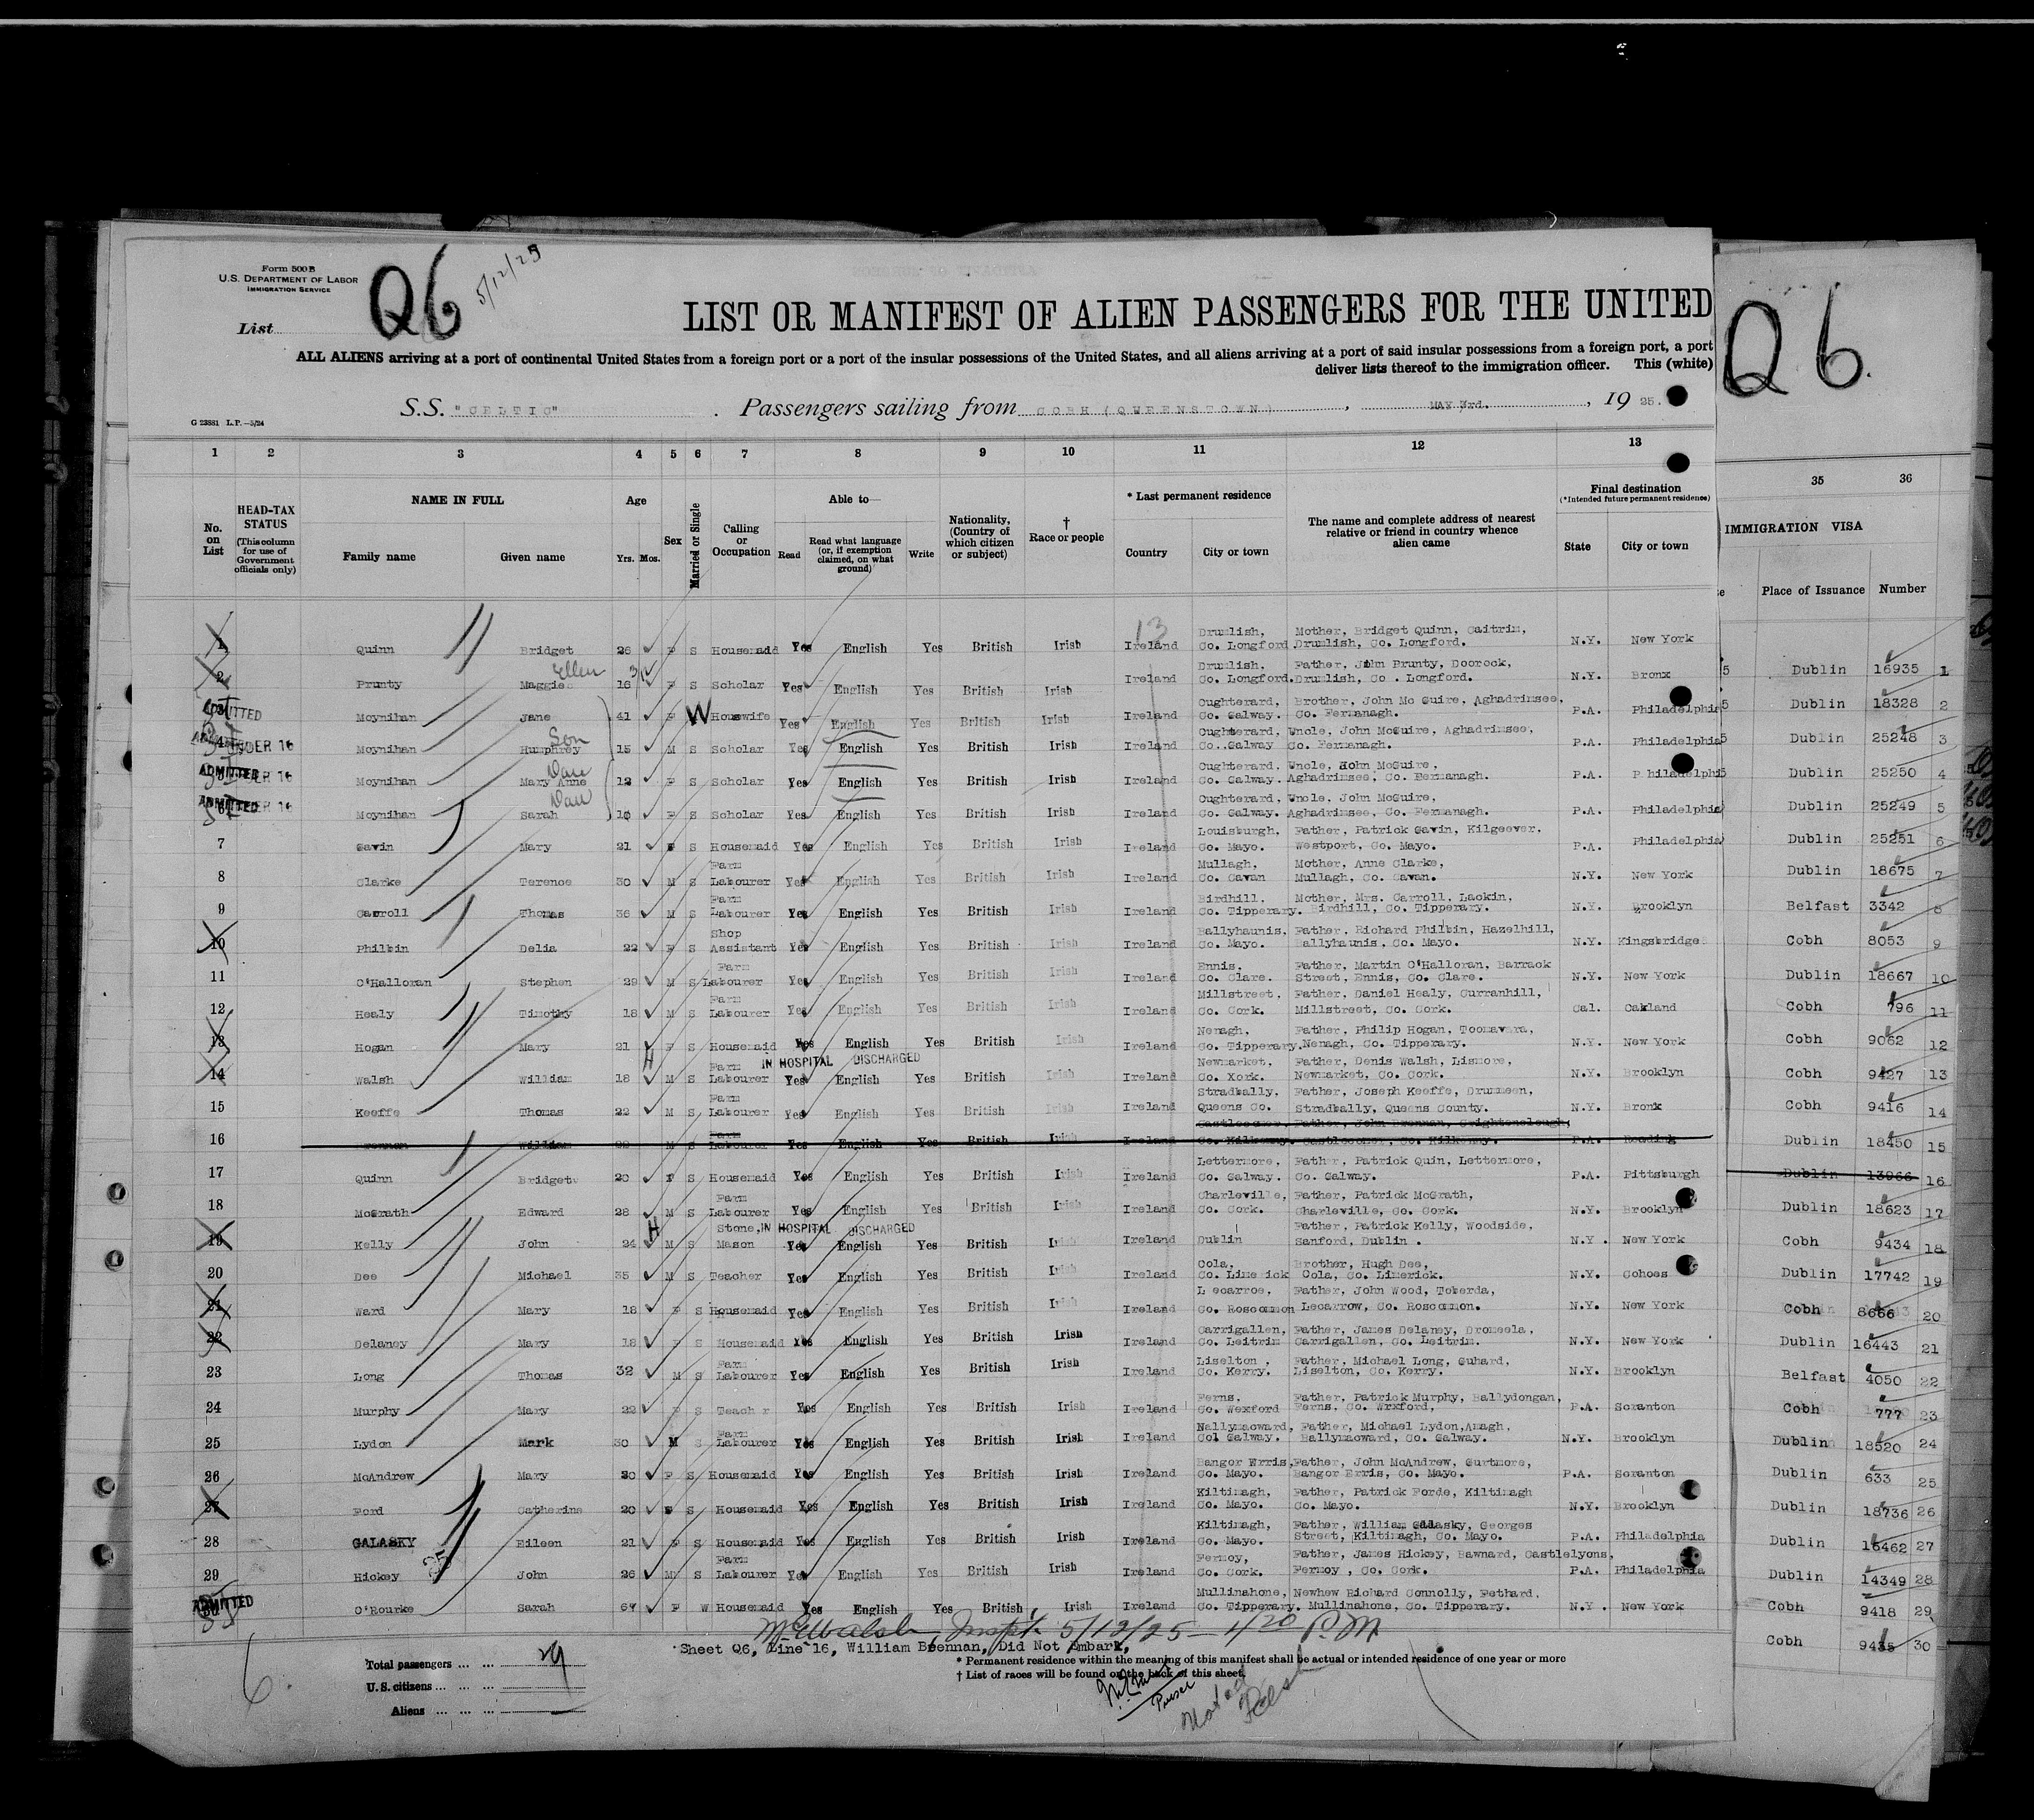 Form 500B
U.S. DEPARTMENT OF LABOR
IMMIGRATION SERVICE
List
Q6
5/12/25
LIST OR MANIFEST OF ALIEN PASSENGERS FOR THE UNITED
ALL ALIENS arriving at a port of continental United States from a foreign port or a port of the insular possessions of the United States, and all aliens arriving at a port of said insular possessions from a foreign port, a port
deliver lists thereof to the immigration officer. This (white)
Q6.
S.S. "CELTIC". Passengers sailing from COBH (QUEENSTOWN), MAY 3rd., 1925.
G 23881 L.P.—3/24
1 2 3 4 5 6 7 8 9 10 11 12 13 35 36
No. on List
HEAD-TAX STATUS (This column for use of Government officials only)
NAME IN FULL
Family name
Given name
Age
Yrs. Mos.
Sex
Married or Single
Calling or Occupation
Able to—
Read
Read what language (or, if exemption claimed, on what ground)
Write
Nationality, (Country of which citizen or subject)
† Race or people
* Last permanent residence
Country
City or town
The name and complete address of nearest relative or friend in country whence alien came
Final destination
(*Intended future permanent residence)
State
City or town
IMMIGRATION VISA
Place of Issuance
Number
1 Quinn Bridget 26 F S Housemaid Yes English Yes British Irish Ireland Drumlish, Co. Longford Mother, Bridget Quinn, Caitrim, Drumlish, Co. Longford. N.Y. New York
13
2 Prunty Maggie Ellen 16 F S Scholar Yes English Yes British Irish Ireland Drumlish, Co. Longford. Father, John Prunty, Doorock, Drumlish, Co . Longford. N.Y. Bronx
3 ADMITTED Moynihan Jane 41 F W Housewife Yes English Yes British Irish Ireland Oughterard, Co. Galway. Brother, John Mc Guire, Aghadrimsee, Co. Fermanagh. P.A. Philadelphia
4 UNDER 16 Moynihan Humphrey Son 15 M S Scholar Yes English Yes British Irish Ireland Oughterard, Co. Galway Uncle, John McGuire, Aghadrimsee, Co. Fermanagh. P.A. Philadelphia
5 ADMITTED Moynihan Mary Anne Dau 12 F S Scholar Yes English Yes British Irish Ireland Oughterard, Co. Galway. Uncle, John McGuire, Aghadrimsee, Co. Fermanagh. P.A. Philadelphia
6 ADMITTED UNDER 16 Moynihan Sarah Dau 10 F S Scholar Yes English Yes British Irish Ireland Oughterard, Co. Galway. Uncle, John McGuire, Aghadrimsee, Co. Fermanagh. P.A. Philadelphia
7 Gavin Mary 21 F S Housemaid Yes English Yes British Irish Ireland Louisburgh, Co. Mayo. Father, Patrick Gavin, Kilgeever. Westport, Co. Mayo. P.A. Philadelphia
8 Clarke Terence 30 M S Farm Labourer Yes English Yes British Irish Ireland Mullagh, Co. Cavan Mother, Anne Clarke, Mullagh, Co. Cavan. N.Y. New York
9 Carroll Thomas 36 M S Farm Labourer Yes English Yes British Irish Ireland Birdhill, Co. Tipperary. Mother, Mrs. Carroll, Lackin, Birdhill, Co. Tipperary. N.Y. Brooklyn
10 Philbin Delia 22 F S Shop Assistant Yes English Yes British Irish Ireland Ballyhaunis, Co. Mayo. Father, Richard Philbin, Hazelhill, Ballyhaunis, Co. Mayo. N.Y. Kingsbridge
11 O'Halloran Stephen 29 M S Farm Labourer Yes English Yes British Irish Ireland Ennis, Co. Clare. Father, Martin O'Halloran, Barrack Street, Ennis, Co. Clare. N.Y. New York
12 Healy Timothy 18 M S Farm Labourer Yes English Yes British Irish Ireland Millstreet, Co. Cork. Father, Daniel Healy, Curranhill, Millstreet, Co. Cork. Cal. Oakland
13 Hogan Mary 21 F S Housemaid Yes English Yes British Irish Ireland Nenagh, Co. Tipperary. Father, Philip Hogan, Toomavara, Nenagh, Co. Tipperary. N.Y. New York
H IN HOSPITAL DISCHARGED
14 Walsh William 18 M S Farm Labourer Yes English Yes British Irish Ireland Newmarket, Co. Xork. Father, Denis Walsh, Lismore, Newmarket, Co. Cork. N.Y. Brooklyn
15 Keeffe Thomas 22 M S Farm Labourer Yes English Yes British Irish Ireland Stradbally, Queens Co. Father, Joseph Keeffe, Drummeen, Stradbally, Queens County. N.Y. Bronx
16 Brennan William 28 M S Farm Labourer Yes English Yes British Irish Ireland Castlecomer, Co. Kilkenny. Father, John Brennan, Castlecomer, Co. Kilkenny. P.A. Reading
17 Quinn Bridget 20 F S Housemaid Yes English Yes British Irish Ireland Lettermore, Co. Galway. Father, Patrick Quin, Lettermore, Co. Galway. P.A. Pittsburgh
18 McGrath Edward 28 M S Farm Labourer Yes English Yes British Irish Ireland Charleville, Co. Cork. Father, Patrick McGrath, Charleville, Co. Cork. N.Y. Brooklyn
H IN HOSPITAL DISCHARGED
19 Kelly John 24 M S Stone, Mason Yes English Yes British Irish Ireland Dublin Father, Patrick Kelly, Woodside, Sanford, Dublin . N.Y . New York
20 Dee Michael 35 M S Teacher Yes English Yes British Irish Ireland Cola, Co. Limerick Brother, Hugh Dee, Cola, Co. Limerick. N.Y. Cohoes
21 Ward Mary 18 F S Housemaid Yes English Yes British Irish Ireland Lecarroe, Co. Roscommon Father, John Wood, Toberda, Lecarrow, Co. Roscommon. N.Y. New York
22 Delaney Mary 18 F S Housemaid Yes English Yes British Irish Ireland Carrigallen, Co. Leitrim Father, James Delaney, Dromeela, Carrigallen, Co. Leitrim. N.Y. New York
23 Long Thomas 32 M S Farm Labourer Yes English Yes British Irish Ireland Liselton , Co. Kerry. Father, Michael Long, Guhard, Liselton, Co. Kerry. N.Y. Brooklyn
24 Murphy Mary 22 F S Teacher Yes English Yes British Irish Ireland Ferns. Co. Wexford Father, Patrick Murphy, Ballydongan, Ferns, Co. Wrxford, P.A. Scranton
25 Lydon Mark 30 M S Farm Labourer Yes English Yes British Irish Ireland Nallymacward, Col Galway. Father, Michael Lydon, Amagh, Ballymacward, Co. Galway. N.Y. Brooklyn
26 McAndrew Mary 20 F S Housemaid Yes English Yes British Irish Ireland Bangor Erris, Co. Mayo. Father, John McAndrew, Gurtmore, Bangor Erris, Co. Mayo. P.A. Scranton
27 Ford Catherine 20 F S Housemaid Yes English Yes British Irish Ireland Kiltimagh, Co. Mayo. Father, Patrick Forde, Kiltimagh Co. Mayo. N.Y. Brooklyn
28 GALASKY Eileen 21 F S Housemaid Yes English Yes British Irish Ireland Kiltimagh, Co. Mayo. Father, William Galasky, Georges Street, Kiltimagh, Co. Mayo. P.A. Philadelphia
29 Hickey John 26 M S Farm Labourer Yes English Yes British Irish Ireland Fermoy, Co. Cork. Father, James Hickey, Bawnard, Castlelyons, Fermoy , Co. Cork. P.A. Philadelphia
30 ADMITTED O'Rourke Sarah 67 F W Housemaid Yes English Yes British Irish Ireland Mullinahone, Co. Tipperary. Newhew Richard Connolly, Fethard, Mullinahone, Co. Tipperary. N.Y . New York
Dublin 16935 1
Dublin 18328 2
Dublin 25248 3
Dublin 25250 4
Dublin 25249 5
Dublin 25251 6
Dublin 18675 7
Belfast 3342 8
Cobh 8053 9
Dublin 18667 10
Cobh 796 11
Cobh 9062 12
Cobh 9427 13
Cobh 9416 14
Dublin 18450 15
Dublin 13966 16
Dublin 18623 17
Cobh 9434 18
Dublin 17742 19
Cobh 8666 20
Dublin 16443 21
Belfast 4050 22
Cobh 777 23
Dublin 18520 24
Dublin 633 25
Dublin 18736 26
Dublin 16462 27
Dublin 14349 28
Cobh 9418 29
Cobh 9435 30
Inspt. 5/12/25 4 20 P.M
Sheet Q6, Line 16, William Brennan, Did Not Embark.
Total passengers ... ... 29
U. S. citizens ... ... ...
Aliens ... ... ...
6.
* Permanent residence within the meaning of this manifest shall be actual or intended residence of one year or more
† List of races will be found on the back of this sheet.
Purser